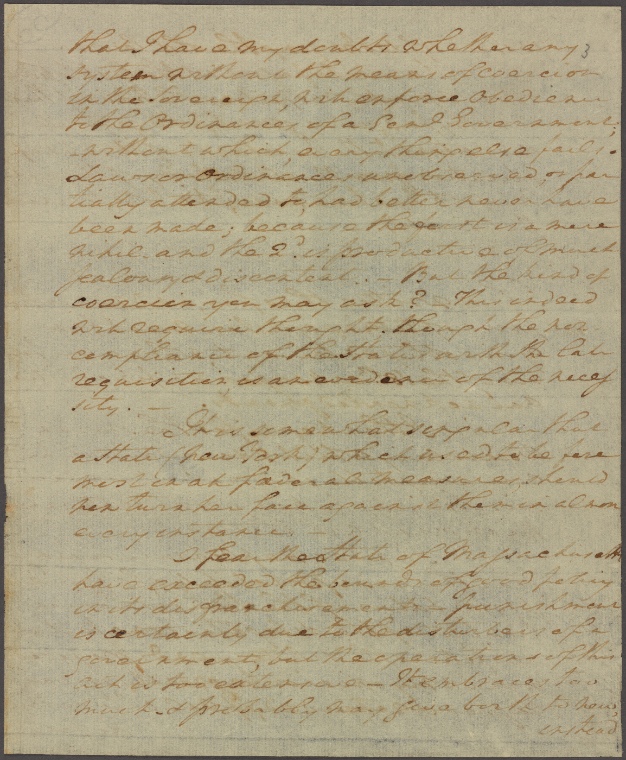 that I have my doubts whether any 3
system without the means of coercion
in the Sovereign, will enforce obedience
to the Ordinances of a Genl Government;
without which, every thing else fails.
Laws or Ordinances unobserved, or par
tially attended to, had better never have
been made; because the first is a mere
nihil and the 2d. is productive of much
jealousy & discontent. – But the kind of
coercion you may ask? – This indeed
will require thought. though the non
compliance of the States with the late
requisition is an evidence of the neces
sity. –
It is somewhat singular that
a State (New York) which used to be fore
most in all foederal measures, should
now turn her face against them in almost
every instance. –
I fear the State of Massachusetts
have exceeded the bounds of good policy
in its disfranchisements – punishment
is certainly due to the disturbers of a
government, but the operations of this
act is too extensive – It embraces too
much – & probably may give birth to new,
instead